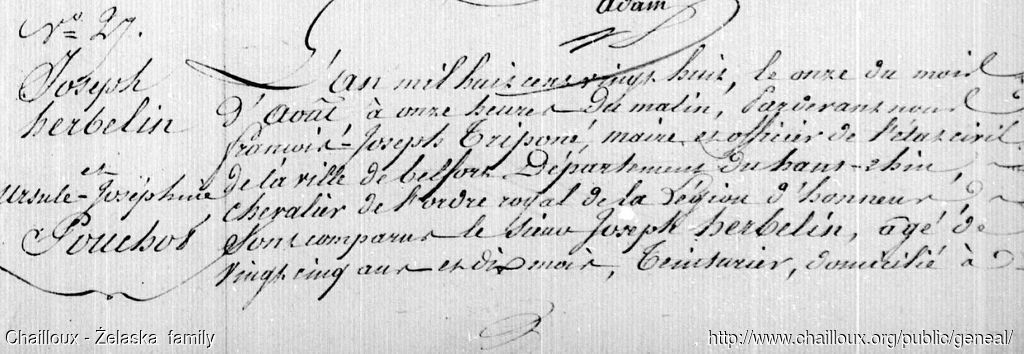 Adam
N.º 27.
Joseph
herbelin
et
Ursule-Joséphine
Pouchot
L'an mil huit cent vingt huit, le onze du mois
d'Août à onze heures du matin, Pardevant nous
françois-Joseph Triponé, maire et officier de l'état civil
de la ville de belfort Département du haut-rhin,
chevalier de l'ordre royal de la Légion d'honneur
Sont comparus le Sieur Joseph herbelin, âgé de
vingt cinq ans et dix mois, Teinturier, domicilié à
Chailloux - Želaska family
http://www.chailloux.org/public/geneal/